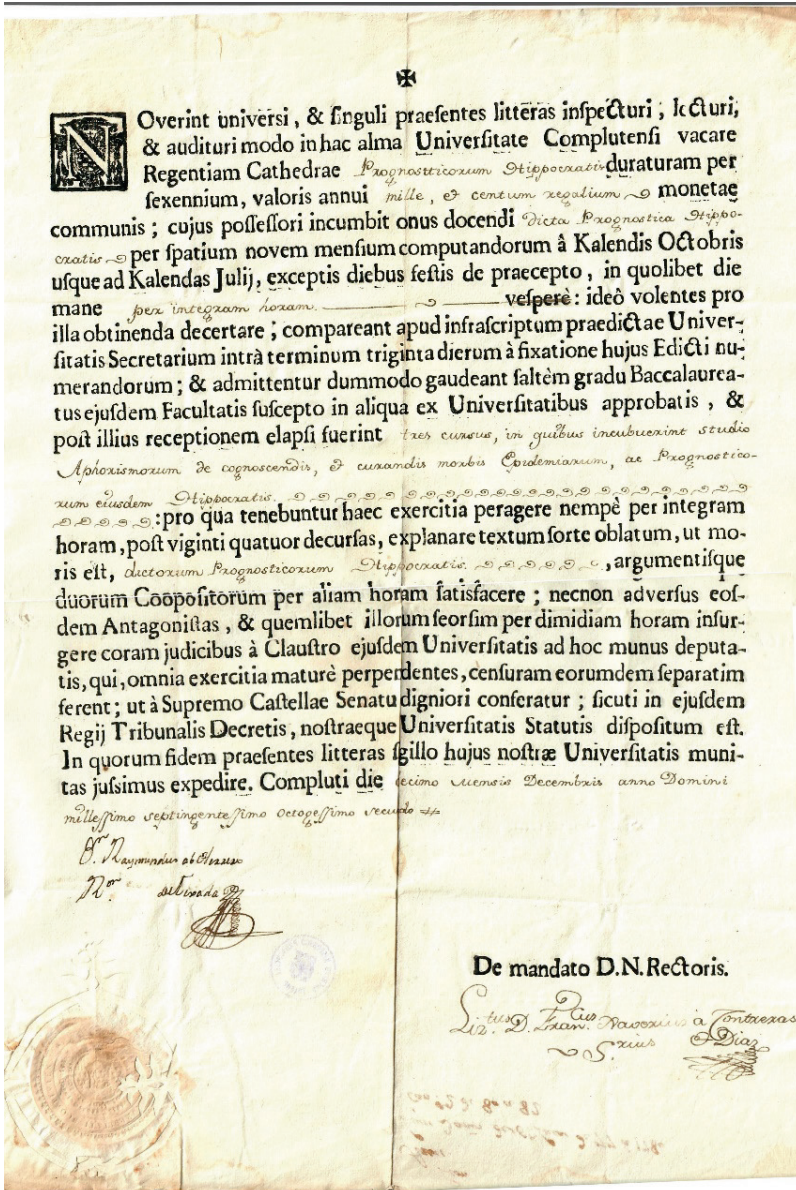 ✠
NOverint universi, & singuli praesentes litteras inspecturi, lecturi,
& audituri modo in hac alma Universitate Complutensi vacare
Regentiam Cathedrae Prognosticorum Hippocratis duraturam per
sexennium, valoris annui mille, et centum regalium monetae
communis; cujus possessori incumbit onus docendi dicta Prognostica Hippo-
cratis per spatium novem mensium computandorum â Kalendis Octobris
usque ad Kalendas Julij, exceptis diebus festis de praecepto, in quolibet die
mane per integram horam. vesperè: ideô volentes pro
illa obtinenda decertare; compareant apud infrascriptum praedictae Univer-
sitatis Secretarium intrà terminum triginta dierum à fixatione hujus Edicti nu-
merandorum; & admittentur dummodo gaudeant saltèm gradu Baccalaurea-
tus ejusdem Facultatis suscepto in aliqua ex Universitatibus approbatis, &
post illius receptionem elapsi fuerint tres cursus, in quibus incubuerint studio
Aphorismorum de cognoscendis, et curandis morbis Epidemiarum, ac Prognostico-
rum eiusdem Hippocratis.
:pro qua tenebuntur haec exercitia peragere nempè per integram
horam, post viginti quatuor decursas, explanare textum sorte oblatum, ut mo-
ris est, dictorum Prognosticorum Hippocratis. , argumentisque
duorum Coôpositorum per aliam horam satisfacere; necnon adversus eos-
dem Antagonistas, & quemlibet illorum seorsim per dimidiam horam insur-
gere coram judicibus à Claustro ejusdem Universitatis ad hoc munus deputa-
tis, qui, omnia exercitia maturè perpendentes, censuram eorumdem separatim
ferent; ut à Supremo Castellae Senatu digniori conferatur; sicuti in ejusdem
Regij Tribunalis Decretis, nostraeque Universitatis Statutis dispositum est.
In quorum fidem praesentes litteras sgillo hujus nostræ Universitatis muni-
tas jussimus expedire. Compluti die decimo Mensis Decembris anno Domini
millessimo septingentessimo Octogessimo secundo
Dr. Raymundus ab
Ror.
De mandato D.N. Rectoris.
Liz.tus D. Fran.cus Xaverius à Contreras
S.rius Diaz